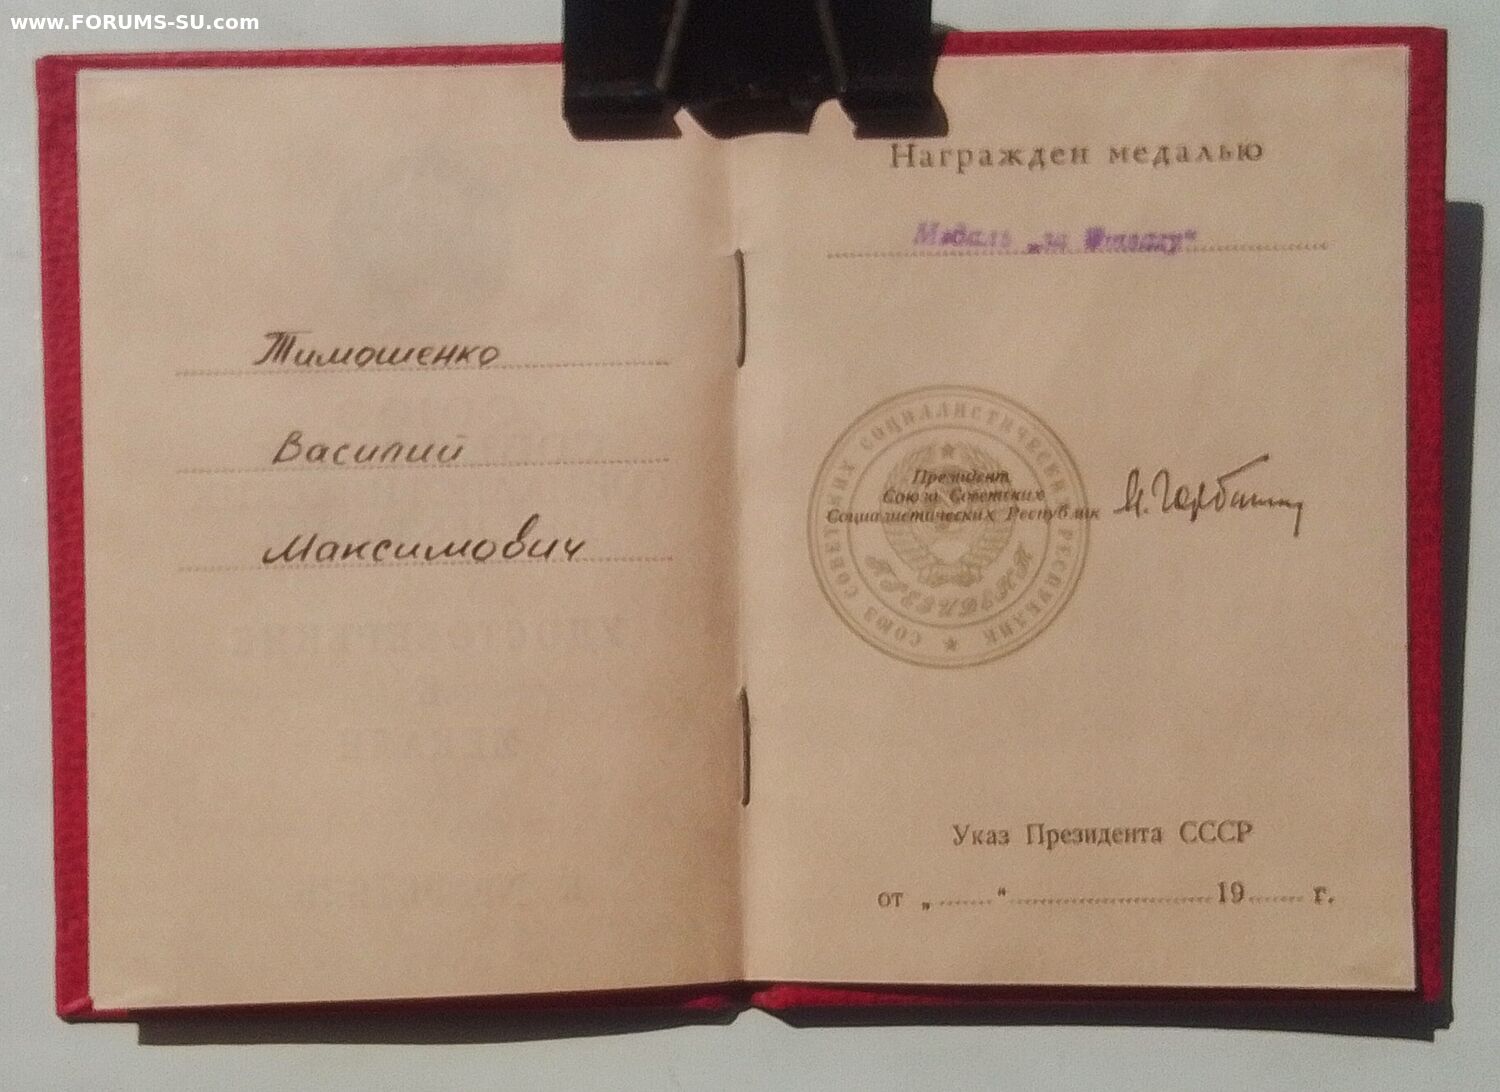 www.FORUMS-SU.com
Тимошенко
Василий
Максимович
Награжден медалью
Медаль „за Отвагу“
СОЮЗ СОВЕТСКИХ СОЦИАЛИСТИЧЕСКИХ РЕСПУБЛИК
Президент
Союза Советских
Социалистических Республик
М. Горбачев
ПРЕЗИДЕНТ
Указ Президента СССР
от „ “ 19 г.